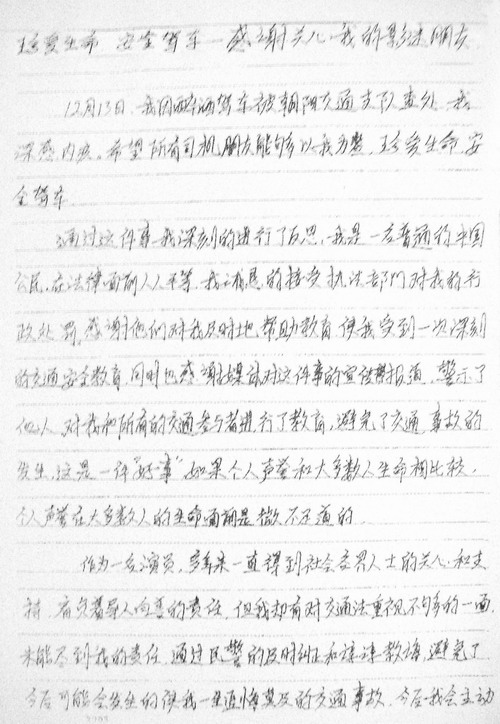 珍爱生命 安全驾车—感谢关心我的影迷朋友
12月13日,我因酗酒驾车被朝阳交通支队查处,我
深感内疚。希望所有司机朋友能够以我为鉴,珍爱生命,安
全驾车。
通过这件事我深刻的进行了反思,我是一名普通的中国
公民,在法律面前人人平等,我诚恳的接受执法部门对我的行
政处罚,感谢他们对我及时地帮助教育,使我受到一次深刻
的交通安全教育,同时也感谢媒体对这件事的宣传报道,警示了
他人,对我和所有的交通参与者进行了教育,避免了交通事故的
发生,这是一件“好事”如果个人声誉和大多数人生命相比较,
个人声誉在大多数人的生命面前是微不足道的。
作为一名演员,多年来一直得到社会各界人士的关心和支
持,肩负着导人向善的责任,但我却有对交通法重视不够的一面,
未能尽到我的责任。通过民警的及时纠正和谆谆教诲,避免了
今后可能会发生的使我一生追悔莫及的交通事故,今后我会主动